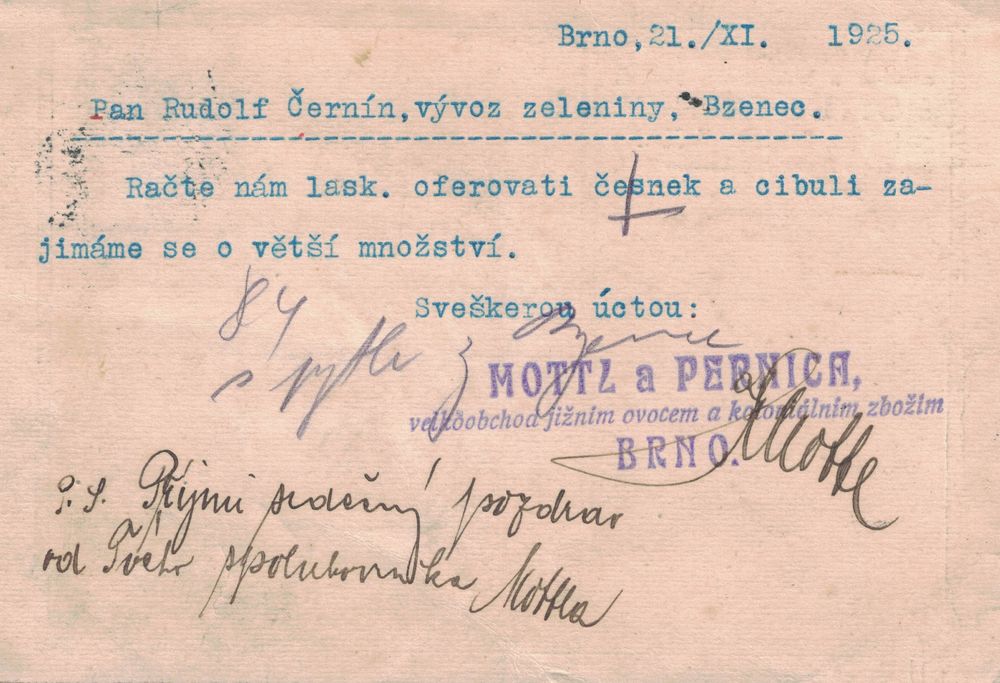 Brno,21./XI. 1925.
Pan Rudolf Černín,vývoz zeleniny, Bzenec.
Račte nám lask. oferovati česnek a cibuli za-
jimáme se o větší množství.
Sveškerou úctou:
84
s pytle z Bzence
MOTTL a PERNICA,
velkoobchod jižním ovocem a koloniálním zbožím
BRNO.
Mottl
P.S. Přijmi srdečný pozdrav
od Tvého spolubojovníka Mottla